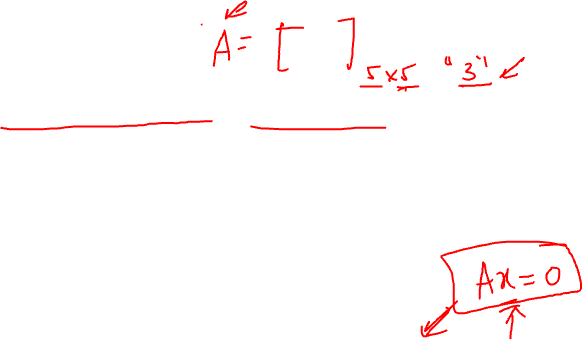 A = [ ]5×5 "3"
Ax = 0